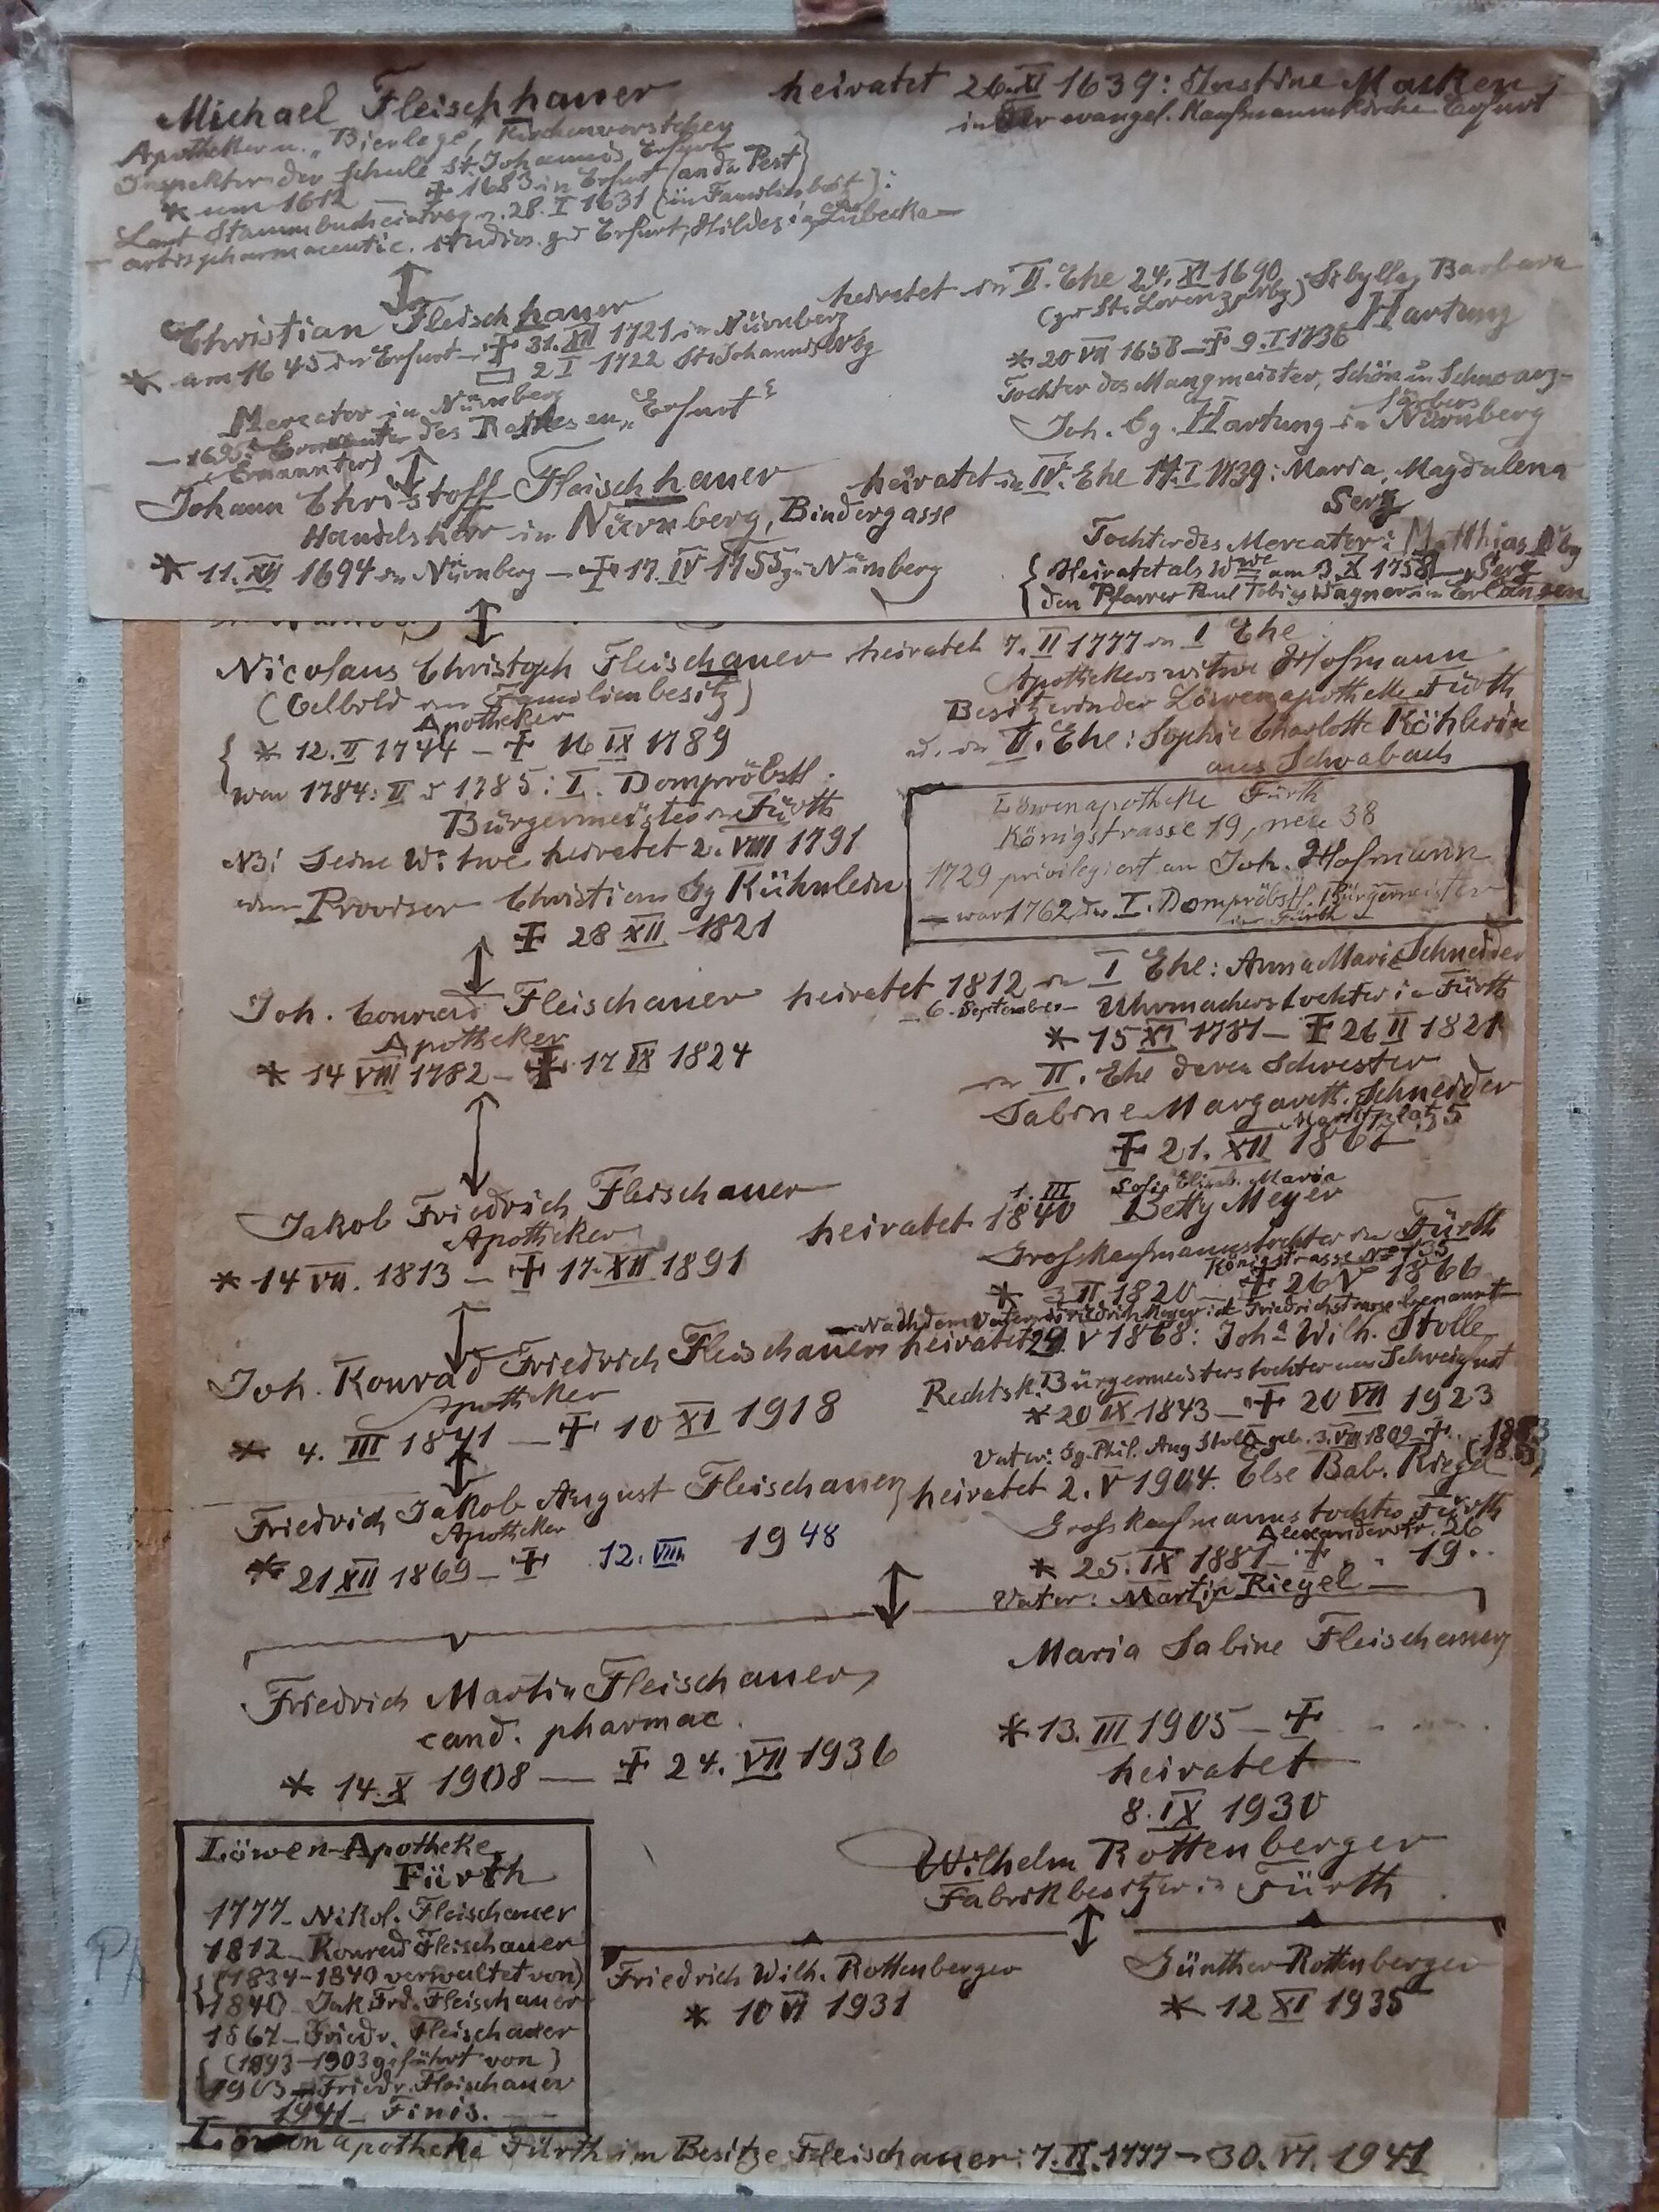 Michael Fleischhauer heiratet 26.XI 1639: Justine Macken,
in der evangel. Kaufmannskirche Erfurt
Apotheker u. „Bierlege", Kirchenvorsteher
Inspektor der Schule St. Johannis Erfurt
* um 1612 — ✝ 1683 in Erfurt (an der Pest)
Laut Stammbucheintrag v. 28. I 1631 (in Familienbesitz):
artis pharmaceutic. studios. zu Erfurt, Hildesia, Lubecka —
Christian Fleischhauer
* am 1645 in Erfurt — ✝ 31. XII 1721 in Nürnberg
2 I 1722 St. Johannis Nbg
Mercator in Nürnberg
— 1695: des Rathes en „Erfurt"
(Ernannter)
heiratet in II. Ehe 24. XI 1690 Sibylla, Barbara
(zu St. Lorenz, Nbg) Hartung
* 20 VII 1658 — ✝ 9. I 1736
Tochter des Mangmeister, Schön u Schwarz-
färbers
Joh. Gg. Hartung in Nürnberg
Johann Christoff Fleischhauer
Handelsherr in Nürnberg, Bindergasse
* 11. XII 1694 in Nürnberg — ✝ 17. IV 1755 zu Nürnberg
heiratet in IV. Ehe 14. I 1739: Maria, Magdalena
Serz
Tochter des Mercator: Matthias Nbg
Serz
Heiratet als Wwe am 3. X 1758
den Pfarrer Paul Tobias Wagner in Erlangen
Nicolaus Christoph Fleischauer heiratet 7. II 1777 in I Ehe
(Oelbild im Familienbesitz)
Apotheker
* 12. II 1744 — ✝ 16 IX 1789
war 1784: II u 1785: I. Dompröbstl.
Bürgermeister in Fürth
NB! Seine Witwe heiratet 2. VIII 1791
den Provisor Christian Gg Kühnlein
✝ 28 XII 1821
Apothekerswitwe Hofmann
Besitzerin der Löwenapotheke Fürth
u. in II. Ehe: Sophie Charlotte Köhlerin
aus Schwabach
Löwenapotheke Fürth
Königstrasse 19, neu 38
1729 privilegiert an Joh. Hofmann
— war 1762 der I. Dompröbstl. Bürgermeister
in Fürth
Joh. Conrad Fleischauer heiratet 1812 in I Ehe: Anna Maria Schneider
6. September — Uhrmacherstochter in Fürth
Apotheker
* 14 VIII 1782 — ✝ 17 IX 1824
* 15 XI 1781 — ✝ 26 II 1821
in II. Ehe deren Schwester
Sabine Margareth. Schneider
Marktplatz 5
✝ 21. XII 1862
Jakob Friedrich Fleischauer
Apotheker
* 14 VII. 1813 — ✝ 17. XII 1891
heiratet 1. III 1840 Sofie Elisab. Maria
Betty Meyer
Grosskaufmannstochter in Fürth
Königstrasse No 135
* 3 II 1820 — ✝ 26 V 1866
Nach dem Vater Friedrich Meyer ist Friedrichstrasse benannt
Joh. Konrad Friedrich Fleischauer heiratet 29. V 1868: Joha Wilh. Stolle
Apotheker
* 4. III 1841 — ✝ 10 XI 1918
Rechtsk. Bürgermeisterstochter aus Schweinfurt
* 20 IX 1843 — ✝ 20 VII 1923
Vater: Gg. Phil. Aug Stolle geb. 3. VII 1809 ✝ ...
Friedrich Jakob August Fleischauer, heiratet 2. V 1904. Else Bab. Riegel
Apotheker
* 21 XII 1869 — ✝ 12. VIII 1948
Grosskaufmannstochter Fürth
Alexanderstr. 26
* 25. IX 1881 — ✝ . . 19..
Vater: Martin Riegel —
Friedrich Martin Fleischauer,
cand. pharmac.
* 14. X 1908 — ✝ 24. VII 1936
Maria Sabine Fleischauer
* 13. III 1905 — ✝ . . . .
heiratet
8. IX 1930
Wilhelm Rottenberger
Fabrikbesitzer in Fürth
Friedrich Wilh. Rottenberger
* 10 VI 1931
Günther Rottenberger
* 12 XI 1935
Löwen-Apotheke
Fürth
1777 — Nikol. Fleischauer
1812 — Konrad Fleischauer
(1834—1840 verwaltet von)
1840 — Jak Frd. Fleischauer
1867 — Friedr. Fleischauer
(1893—1903 geführt von)
1903 — Friedr. Fleischauer
1941 — Finis.
Löwenapotheke Fürth im Besitze Fleischauer: 7. II. 1777 — 30. VI. 1941